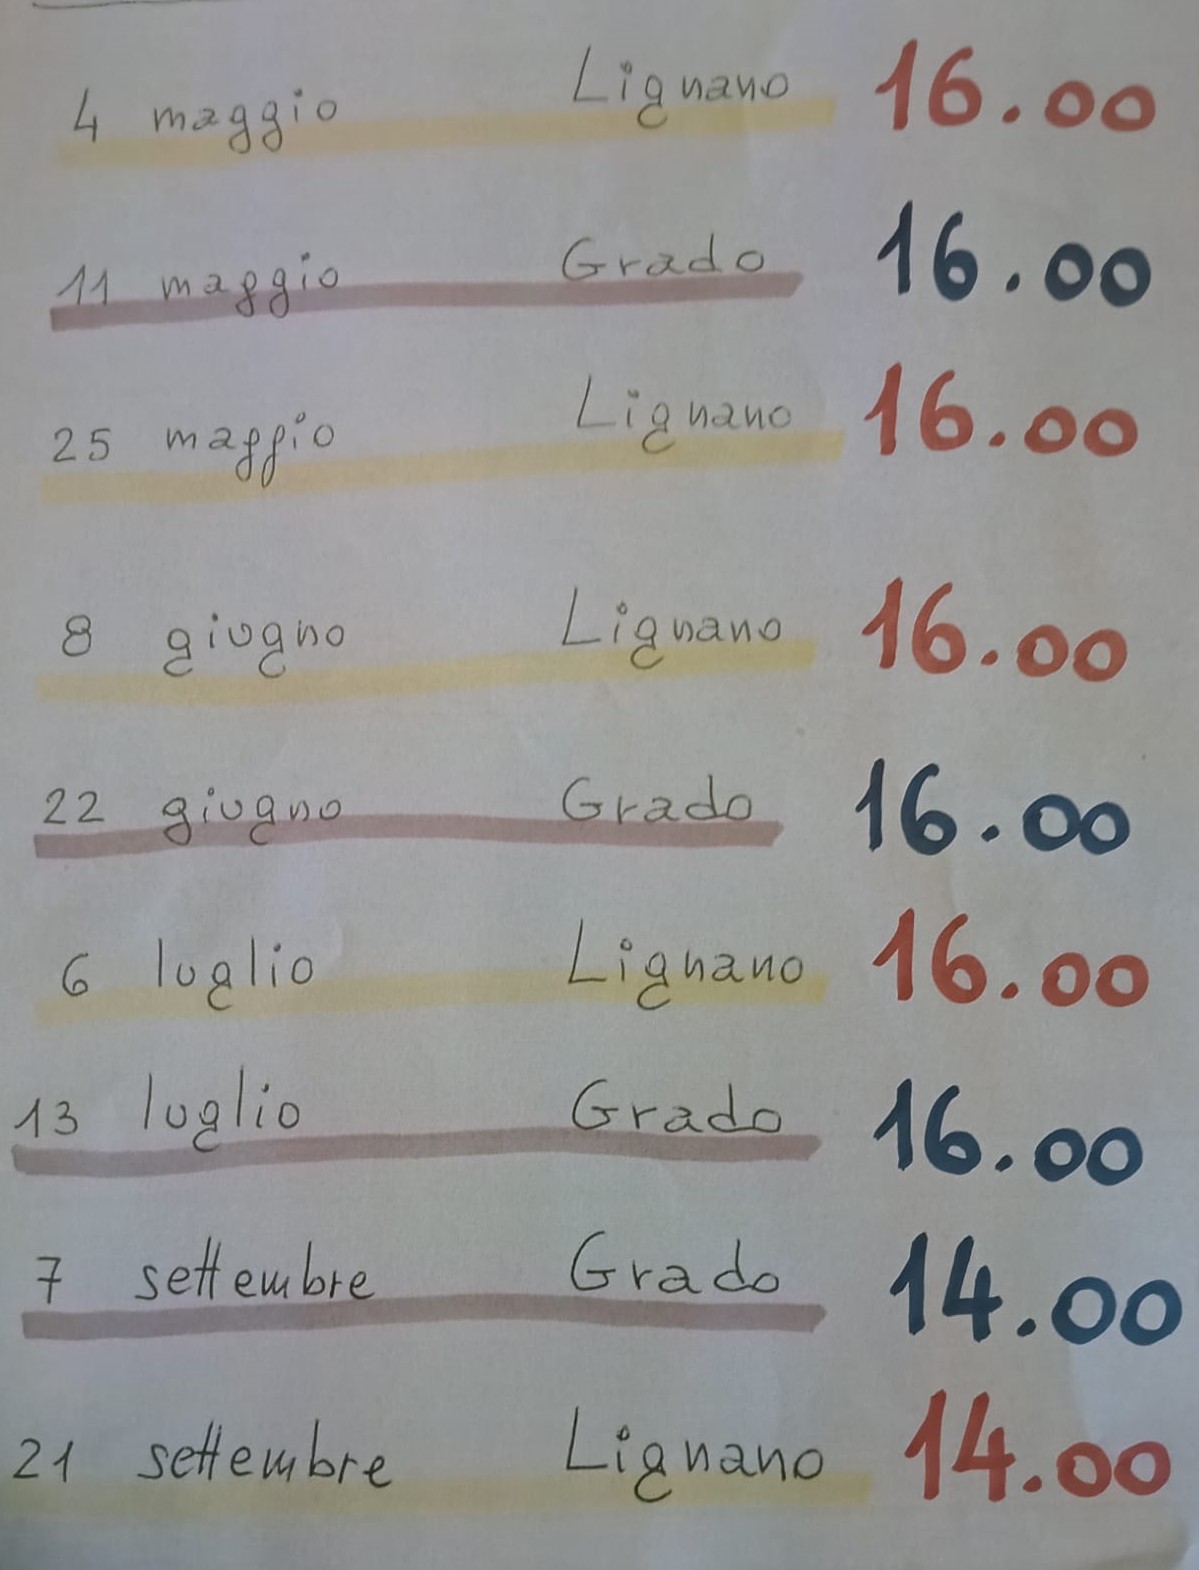 4 maggio Lignano 16.00
11 maggio Grado 16.00
25 maggio Lignano 16.00
8 giugno Lignano 16.00
22 giugno Grado 16.00
6 luglio Lignano 16.00
13 luglio Grado 16.00
7 settembre Grado 14.00
21 settembre Lignano 14.00